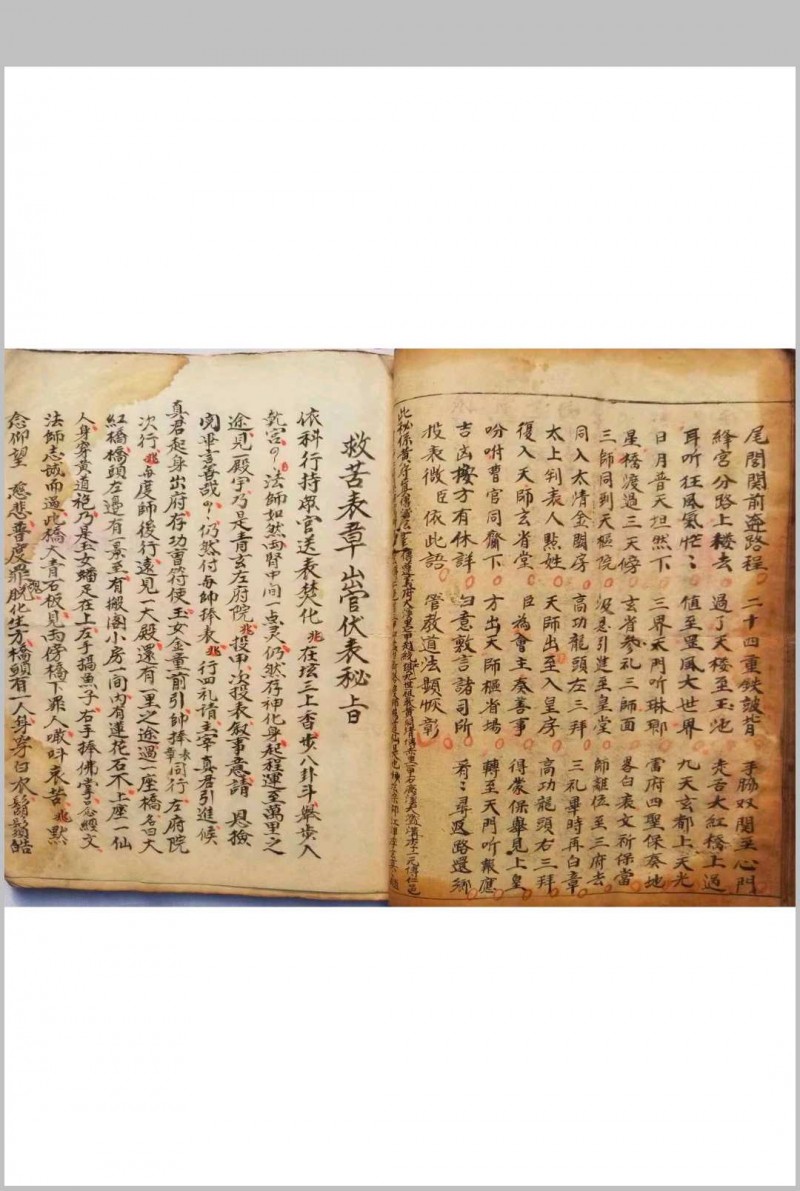 尾閭関前逰路程 二十四重鉄皷背 手脇双関至心門
絳宮分路上樓去 過了天楼至玉池 舌大紅橋上過
耳听狂風氣忙〻 值至罡風大世界 九天玄都上天光
日月普天坦然下 三界天門听琳瑯 當府四聖保奏地
星橋渡過三天傍 玄省参礼三師面 畧白表文祈保當
三師同到天樞院 引進至皇堂 師離位至三府去
同入太清金闕房 高功龍頭左三拜 三礼畢時再白章
太上判表人點姓 天師出至入皇房 高功龍頭右三拜
復入天師玄省堂 臣為會主奏善事 得蒙保舉見上皇
吩咐曹官同齎下 方出天師樞省場 轉至天門听報應
吉凶按方有休詳 勻意敷言諸司所 肴〻尋返路還鄉
投表微臣依此語 管教道法顯恢彰
此秘係黄
救苦表章山管伏表秘旨
依科行持眾官送表焚化兆在玹三上香步八卦斗舉步入
乾宮法師如然両腎中間一点灵仍然存神化身起程運至萬里之
途見一殿宇乃是青玄左府院兆投申次投表叙事意請 恩撿
閱畢言善哉仍然付与師捧表兆行四礼請主宰真君引進候
真君起身出府存功曹符使玉女金童前引師捧表章同行左府院
次行兆与度師後行遠見一大殿還有一里之途過一座橋名曰大
紅橋橋頭左邊有一景至有搬閣小房一間內有蓮花石不上座一仙
人身穿黄道袍乃是玉女蟠足在上左手搞魚子右手捧佛掌念經文
法師志誠而過此橋大青石板見両傍橋下罪人噉呌哀苦兆默
念仰望 慈悲普度罪魂脱化生方橋頭有一人身穿白衣鬍鬚皓